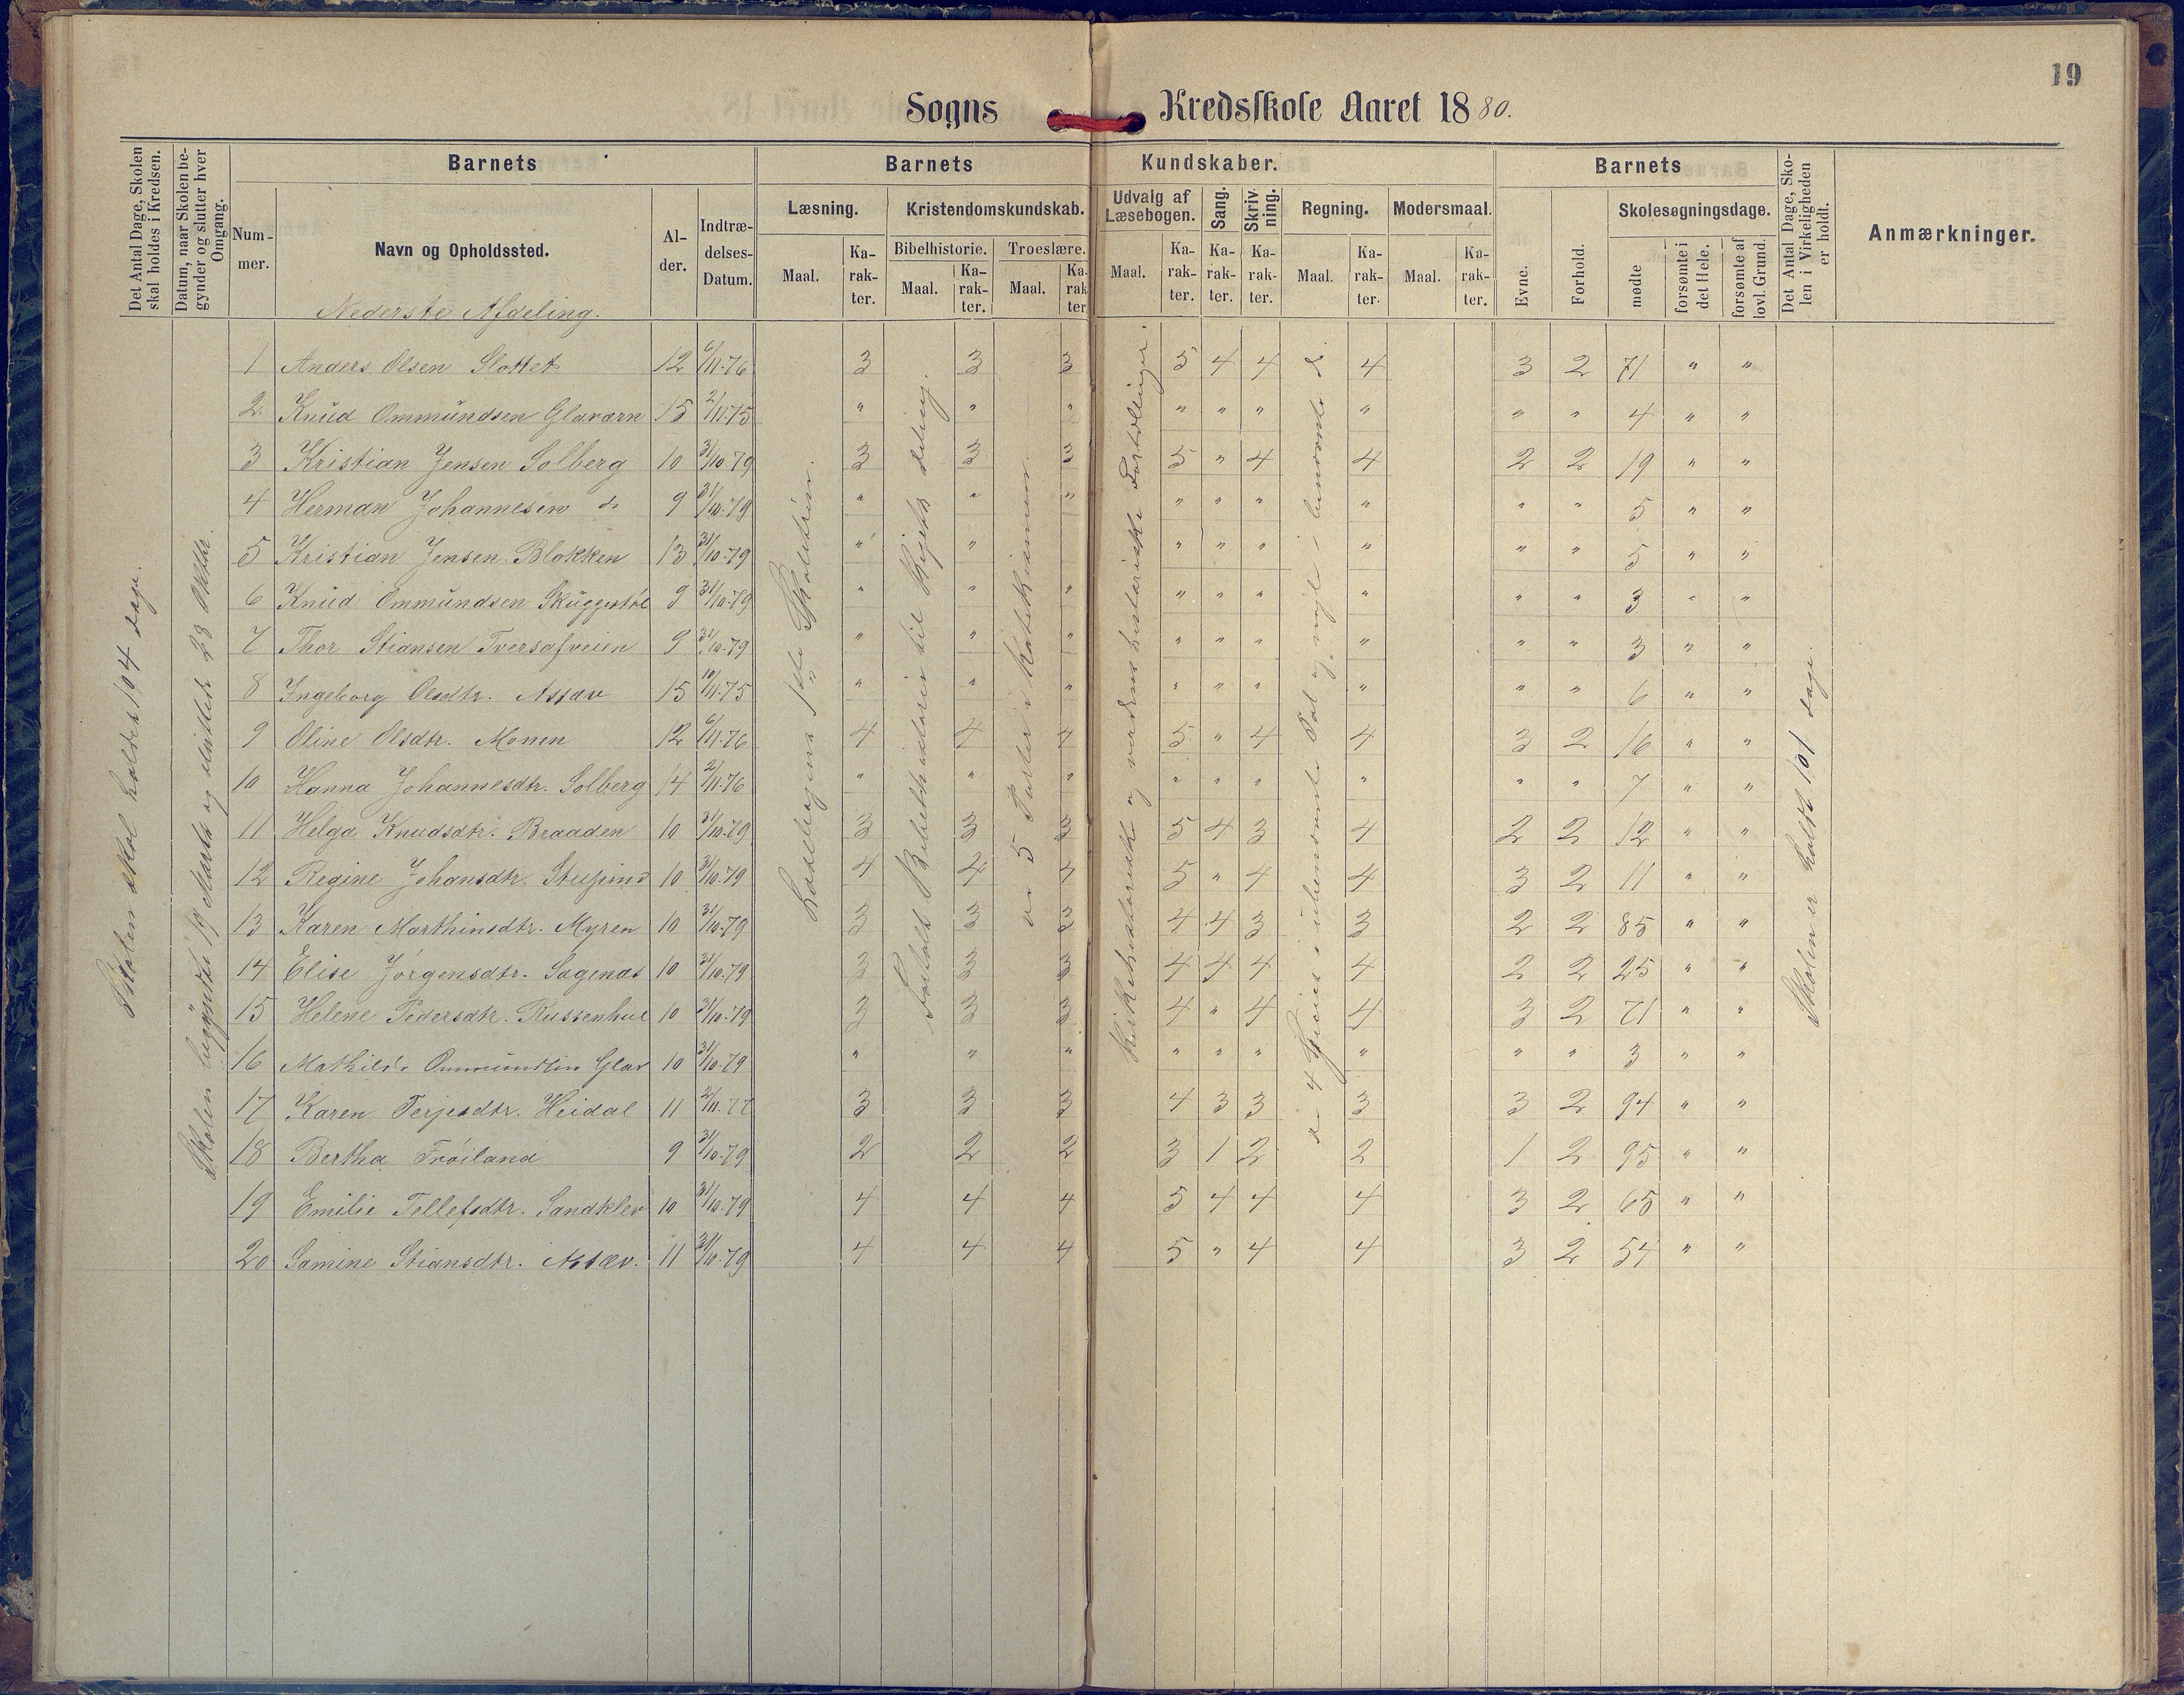 19
Sogns Kredsskole Aaret 1880.
Det Antal Dage, Skolen skal holdes i Kredsen.
Datum, naar Skolen begynder og slutter hver Omgang.
Barnets
Barnets Kundskaber.
Barnets
Det Antal Dage, Skolen i Virkeligheden er holdt.
Anmærkninger.
Nummer.
Navn og Opholdssted.
Alder.
Indtrædelses-Datum.
Læsning.
Kristendomskundskab.
Udvalg af Læsebogen.
Sang.
Skrivning.
Regning.
Modersmaal.
Evne.
Forhold.
Skolesøgningsdage.
Bibelhistorie.
Troeslære.
Maal. Karakter. Maal. Karakter. Maal. Karakter. Maal. Karakter. Karakter. Karakter. Maal. Karakter. Maal. Karakter.
mødte
forsømte i det Hele.
forsømte af lovl. Grund.
Nederste Afdeling.
Skolen skal holdes 104 dage.
Skolen begyndte 19 Marts og sluttede 23 Oktbr.
1 Anders Olsen Slottet 12 6/11-76 3 3 3 5 4 4 4 3 2 71 " "
2 Knud Ommundsen Glaværn 15 2/11-75 " " " " " " " " " 4 " "
3 Kristian Jensen Solberg 10 31/10-79 3 3 3 5 " 4 4 2 2 19 " "
4 Herman Johannesen do 9 31/10-79 " " " " " " " " " 5 " "
5 Kristian Jensen Blokken 13 31/10-79 " " " " " " " " 5 " "
6 Knud Ommundsen Skuggestøl 9 31/10-79 " " " " " " " " " 3 " "
7 Thor Stiansen Tversafveien 9 31/10-79 " " " " " " " " " 3 " "
8 Ingeborg Olsdtr. Assæv 15 10/11-75 " " " " " " " " " 6 " "
9 Oline Olsdtr. Monen 12 6/11-76 4 4 4 5 " 4 4 3 2 16 " "
10 Hanna Johannesdtr. Solberg 14 2/11-76 " " " " " " " " " 7 " "
11 Helga Knudsdtr. Braaden 10 31/10-79 3 3 3 5 4 3 4 2 2 12 " "
12 Regine Johansdtr. 10 31/10-79 4 4 4 5 " 4 4 3 2 11 " "
13 Karen Marthinsdtr. Myren 10 31/10-79 3 3 3 4 4 3 3 2 2 85 " "
14 Elise Jörgensdtr. Sagenæs 10 31/10-79 3 3 3 4 4 4 4 2 2 25 " "
15 Helene Pedersdtr. Russenhul 10 31/10-79 3 3 3 4 " 4 4 3 2 71 " "
16 Mathilde Ommundsen Glav 10 31/10-79 " " " " " " " " " 3 " "
17 Karen Terjesdtr. Heidal 11 2/11-77 3 3 3 4 3 3 3 3 2 94 " "
18 Bertha Fröiland 9 31/10-79 2 2 2 3 1 2 2 1 2 95 " "
19 Emilie Tellefsdtr. Sandklev 10 31/10-79 4 4 4 5 4 4 4 3 2 65 " "
20 Samine Stiansdtr. Assæv. 11 31/10-79 4 4 4 5 " 4 4 3 2 54 " "
Læsebogens 1ste Skoletrin.
Fortalt Bibelhistorie til Rigets deling.
de 5 Parter i Katekismen.
Kirkehistoriske og verdenshistoriske Fortællinger.
de 4 Species i ubenævnte Tal og nogle i benævnte do.
Skolen er holdt 101 dage.